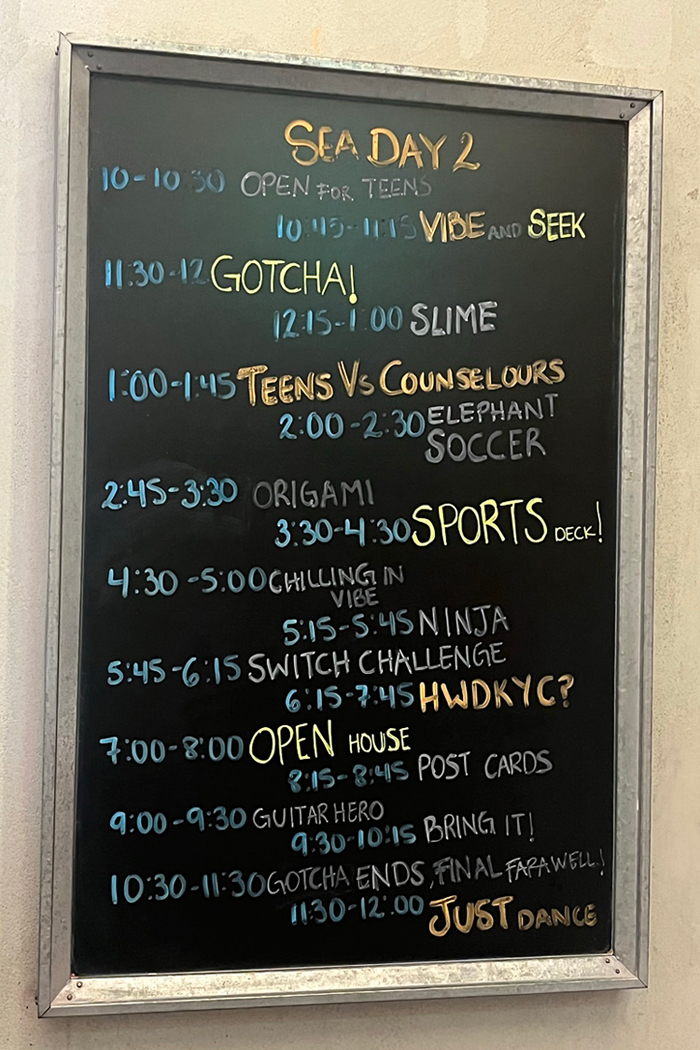 SEA DAY 2
10-10:30 OPEN FOR TEENS
10:45-11:15 VIBE AND SEEK
11:30-12 GOTCHA!
12:15-1:00 SLIME
1:00-1:45 TEENS VS COUNSELOURS
2:00-2:30 ELEPHANT
SOCCER
2:45-3:30 ORIGAMI
3:30-4:30 SPORTS DECK!
4:30-5:00 CHILLING IN
VIBE
5:15-5:45 NINJA
5:45-6:15 SWITCH CHALLENGE
6:15-7:45 HWDKYC?
7:00-8:00 OPEN HOUSE
8:15-8:45 POST CARDS
9:00-9:30 GUITAR HERO
9:30-10:15 BRING IT!
10:30-11:30 GOTCHA ENDS, FINAL FARAWELL!
11:30-12:00 JUST DANCE